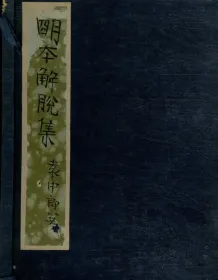 明本解脫集
袁中郎著